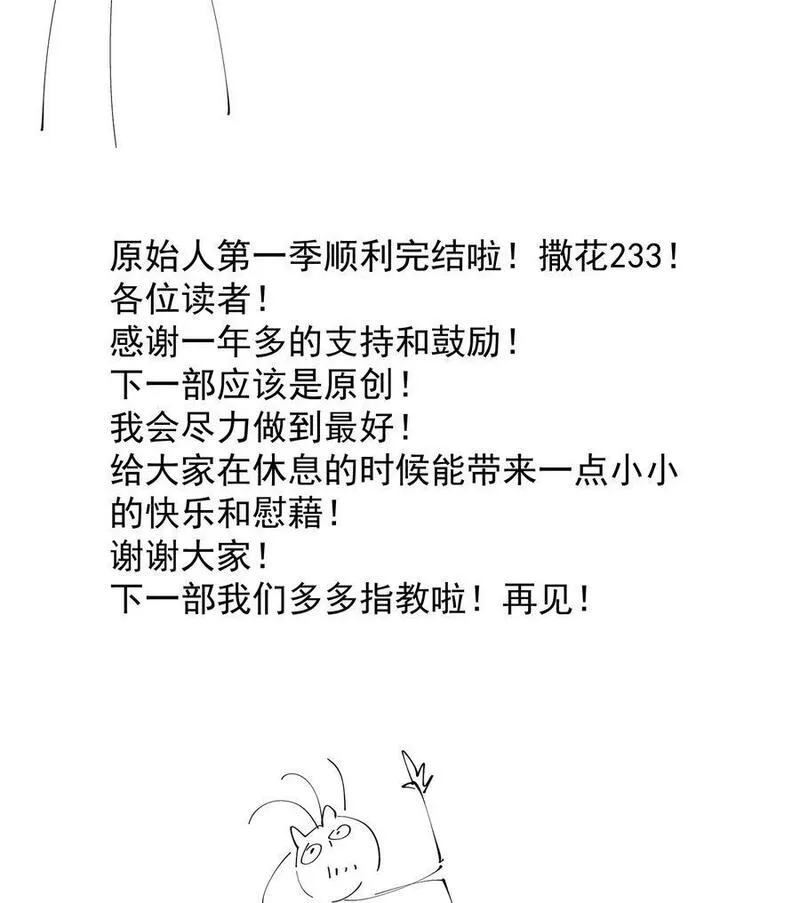 原始人第一季顺利完结啦！撒花233！
各位读者！
感谢一年多的支持和鼓励！
下一部应该是原创！
我会尽力做到最好！
给大家在休息的时候能带来一点小小
的快乐和慰藉！
谢谢大家！
下一部我们多多指教啦！再见！